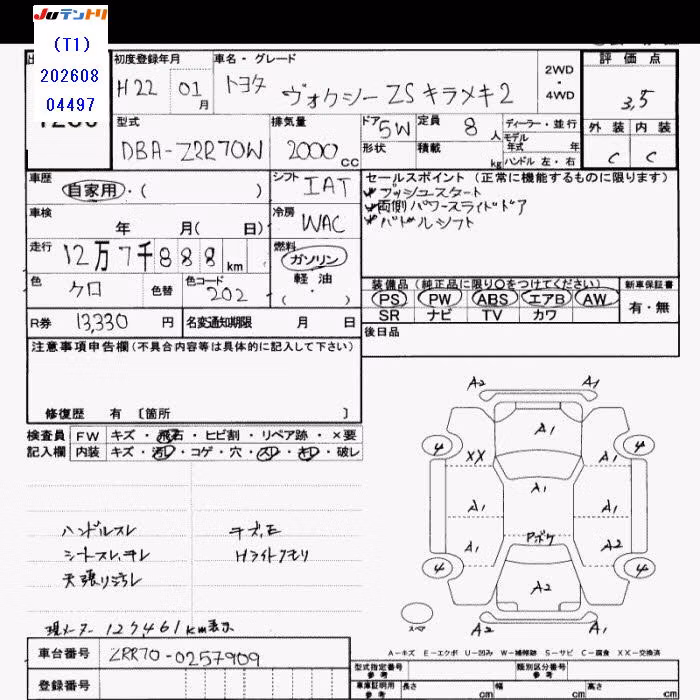 Juテントリ
(T1)
202608
04497
初度登録年月
H22 01月
車名・グレード
トヨタ ヴォクシーZS キラメキ2
2WD・4WD
評価点
3,5
型式
DBA-ZRR70W
排気量
2000cc
ドア 5W
形状
定員 8人
積載 kg
ディーラー・並行
モデル年式 年
ハンドル 左・右
外装 内装
C C
車歴
自家用・( )
シフト IAT
セールスポイント(正常に機能するものに限ります)
プッシュスタート
両側パワースライドドア
パドルシフト
車検 年 月( 日)
冷房 WAC
走行 12万7千888km
燃料
ガソリン
軽油
・( )
色 クロ 色替
色コード 202
装備品(純正品に限り○をつけてください)
PS PW ABS エアB AW
SR ナビ TV カワ
新車保証書
有・無
R券 13,330円 名変通知期限 月 日
後日品
注意事項申告欄(不具合内容等は具体的に記入して下さい)
修復歴 有 〔箇所 〕
検査員記入欄
FW キズ・飛石・ヒビ割・リペア跡・×要
内装 キズ・汚レ・コゲ・穴・スレ・キレ・破レ
ハンドルスレ キズ,E
シートスレ,キレ Hライトクモリ
天張り汚レ
現メーター 127461km表示
A2 A1
A1
4 4
XX
A1
A1 A1
A1 Pボケ A2
4 4
A2
スペア A2 A2
A−キズ E−エクボ U−凹み W−補修跡 S−サビ C−腐食 XX−交換済
車台番号 ZRR70-0257909
登録番号
型式指定番号 参考
類別区分番号 参考
車庫証明用 参考 長さ cm 幅 cm 高さ cm